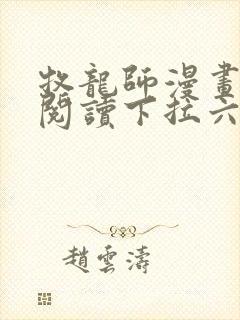 牧龍師漫畫
閱讀下拉六
趙雲濤